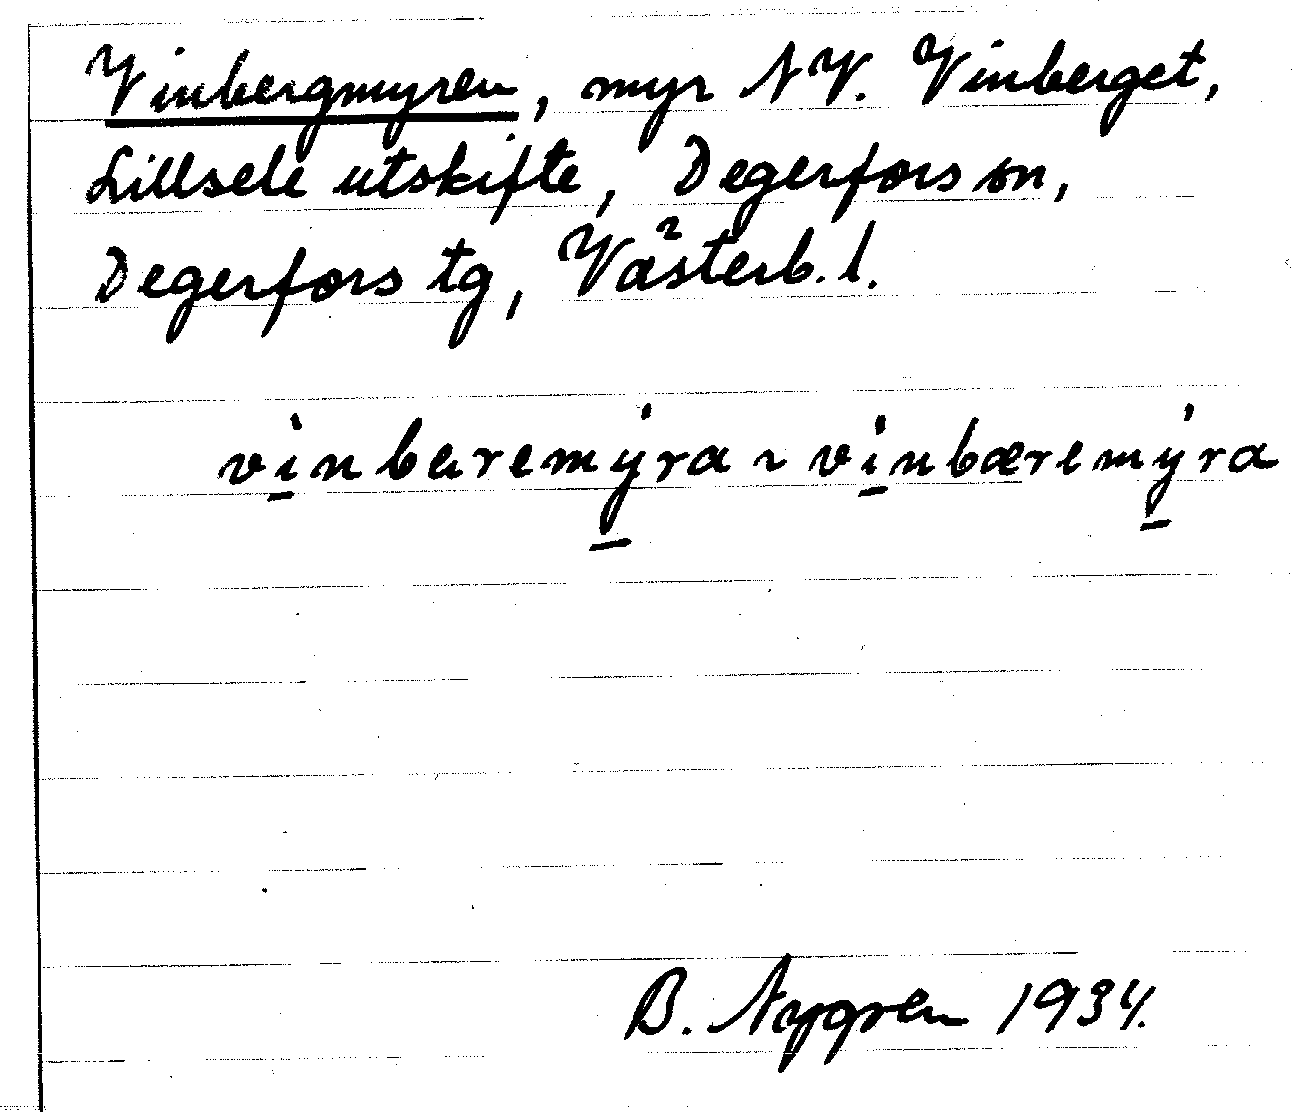 Vinbergmyren, myr NV. Vinberget,
Lillsele utskifte, Degerfors sn,
Degerfors tg, Västerb. l.
vi̱nbaremy̱ra ~ vi̱nbæremy̱ra
B. Nygren 1934.